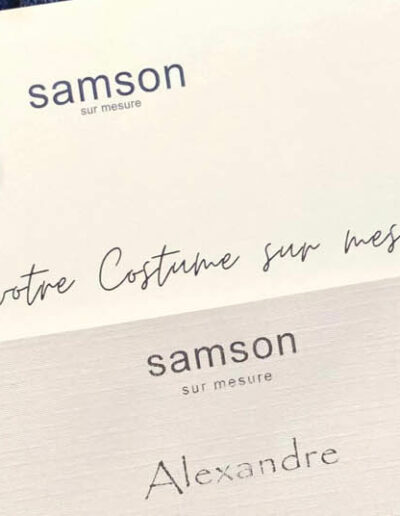 samson
sur mesure
votre Costume sur mes
samson
sur mesure
Alexandre